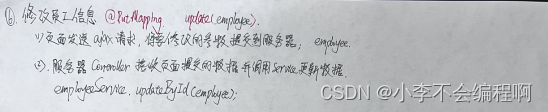 ⑥. 修改员工信息 @PutMapping. update(employee).
(1) 页面发送ajax请求，将要修改的参数提交到服务器； employee.
(2). 服务器Controller接收页面提交的数据并调用Service更新数据.
employeeService.updateById(employee);
CSDN @小李不会编程啊